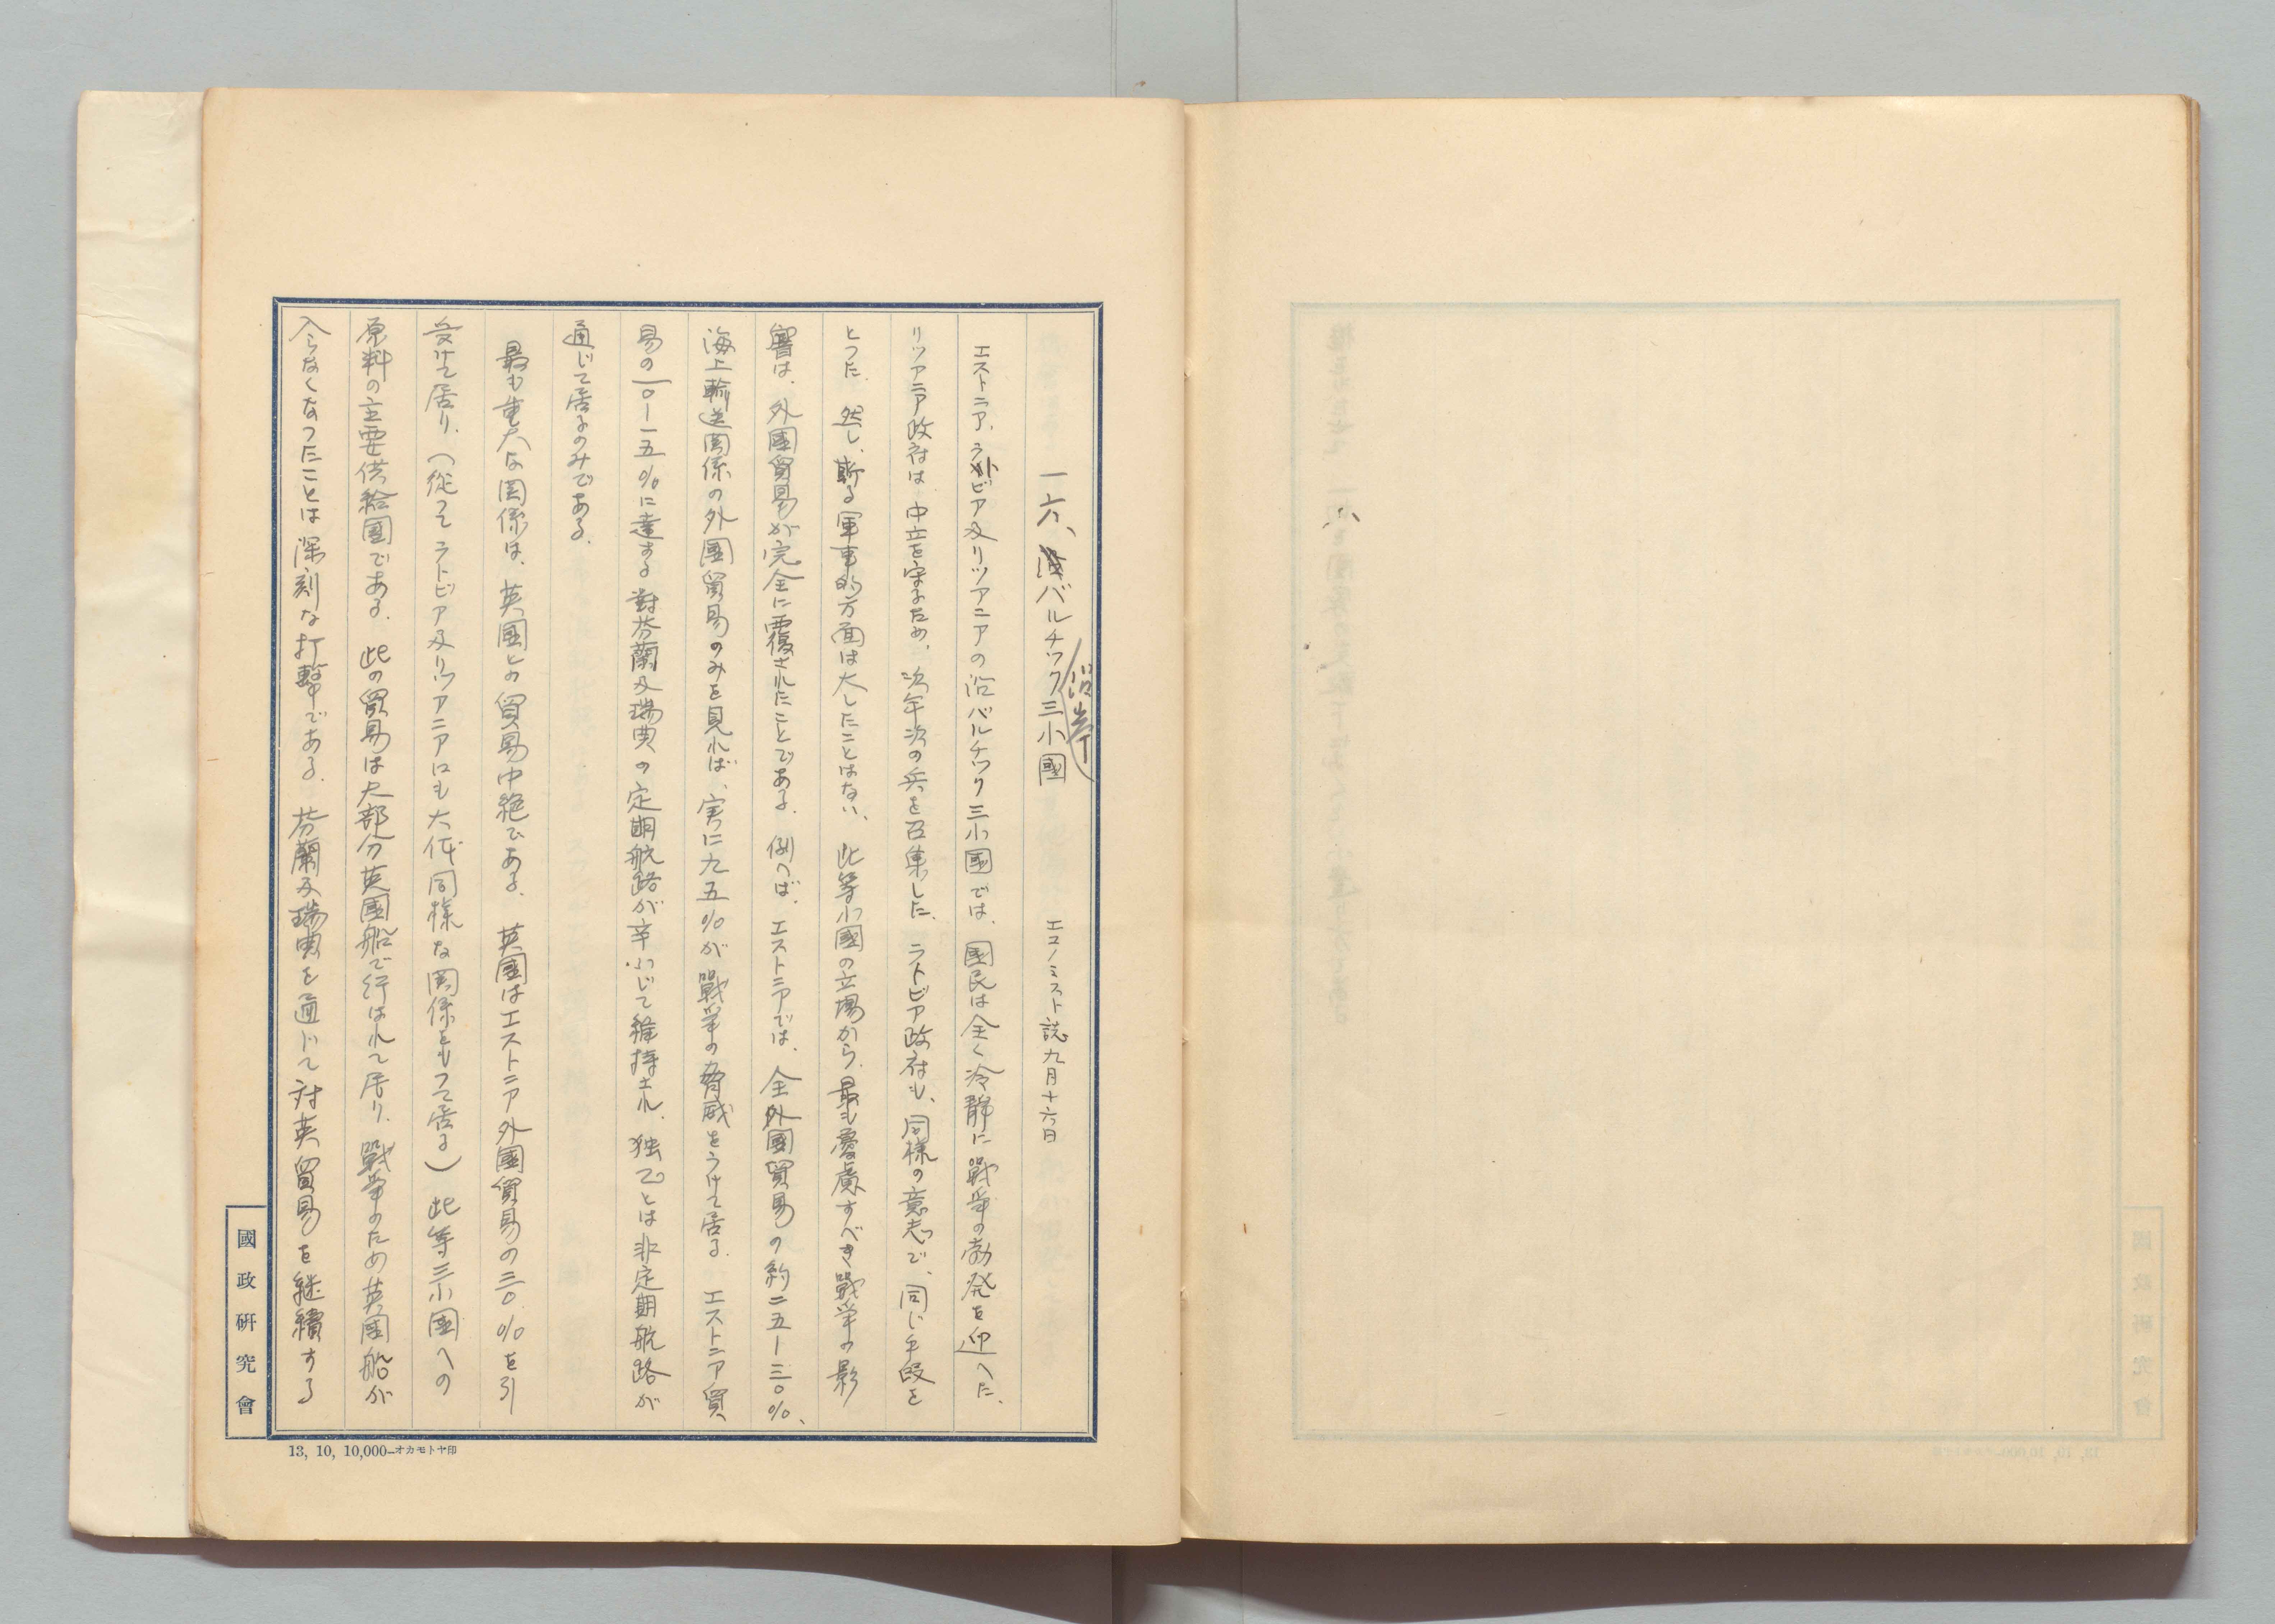 一六、バルチック三小國 エコノミスト誌九月十六日
沿岸
エストニア、ラトビア及リツアニアの沿バルチック三小國では、國民は全く冷静に戰爭の勃発を迎へた、
リツアニア政府は中立を守るため、次年次の兵を召集した、ラトビア政府も、同様の意志で、同じ手段を
とつた、然し、斯る軍事的方面は大したことはない、此等小國の立場から、最も憂慮すべき戰爭の影
響は、外國貿易が完全に覆されたことである、例へば、エストニアでは、全外國貿易の約二五ー三〇%、
海上輸送関係の外國貿易のみを見れば、実に九五%が戰爭の脅威をうけて居る、エストニア貿
易の一〇ー一五%に達する對芬蘭及瑞典の定期航路が辛じて維持され、独乙とは非定期航路が
通じて居るのみである、
最も重大な関係は、英國との貿易中絶である、英國はエストニア外國貿易の三〇%を引
受けて居り、(從つてラトビア及リツアニアにも大体同様な関係をもつて居る)此等三小國への
原料の主要供給國である、此の貿易は大部分英國船で行はれて居り、戰爭のため英國船が
入らなくなつたことは深刻な打撃である、芬蘭及瑞典を通じて対英貿易を継續する
國政研究會
13, 10, 10,000—オカモトヤ印